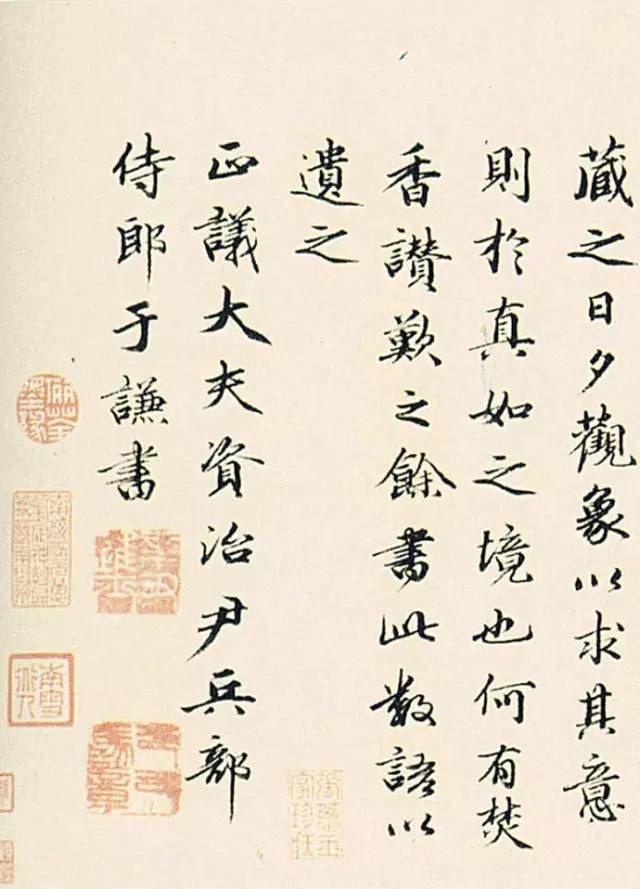 藏之日夕觀象以求其意
則於真如之境也何有焚
香讃歎之餘書此数語以
遺之
正議大夫資治尹兵部
侍郎于謙書
南雪